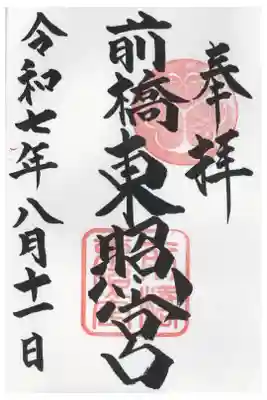 奉拝
前橋東照宮
令和七年八月十一日